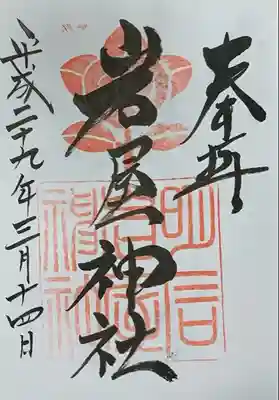 奉拝
岩屋神社
平成二十九年三月十四日